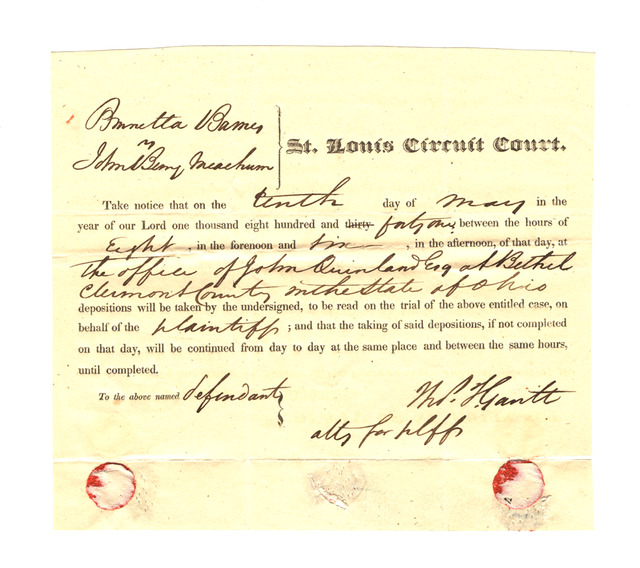 Brunetta Barnes
vs
John Berry Meachum
St. Louis Circuit Court.
Take notice that on the tenth day of May in the
year of our Lord one thousand eight hundred and thirty forty one, between the hours of
Eight, in the forenoon and Six, in the afternoon, of that day, at
the office of John Quinland Esq at Bethel
Clermont County in the State of Ohio
depositions will be taken by the undersigned, to be read on the trial of the above entitled case, on
behalf of the plaintiff; and that the taking of said depositions, if not completed
on that day, will be continued from day to day at the same place and between the same hours,
until completed.
To the above named defendant
Thos. T Gantt
atty for plff